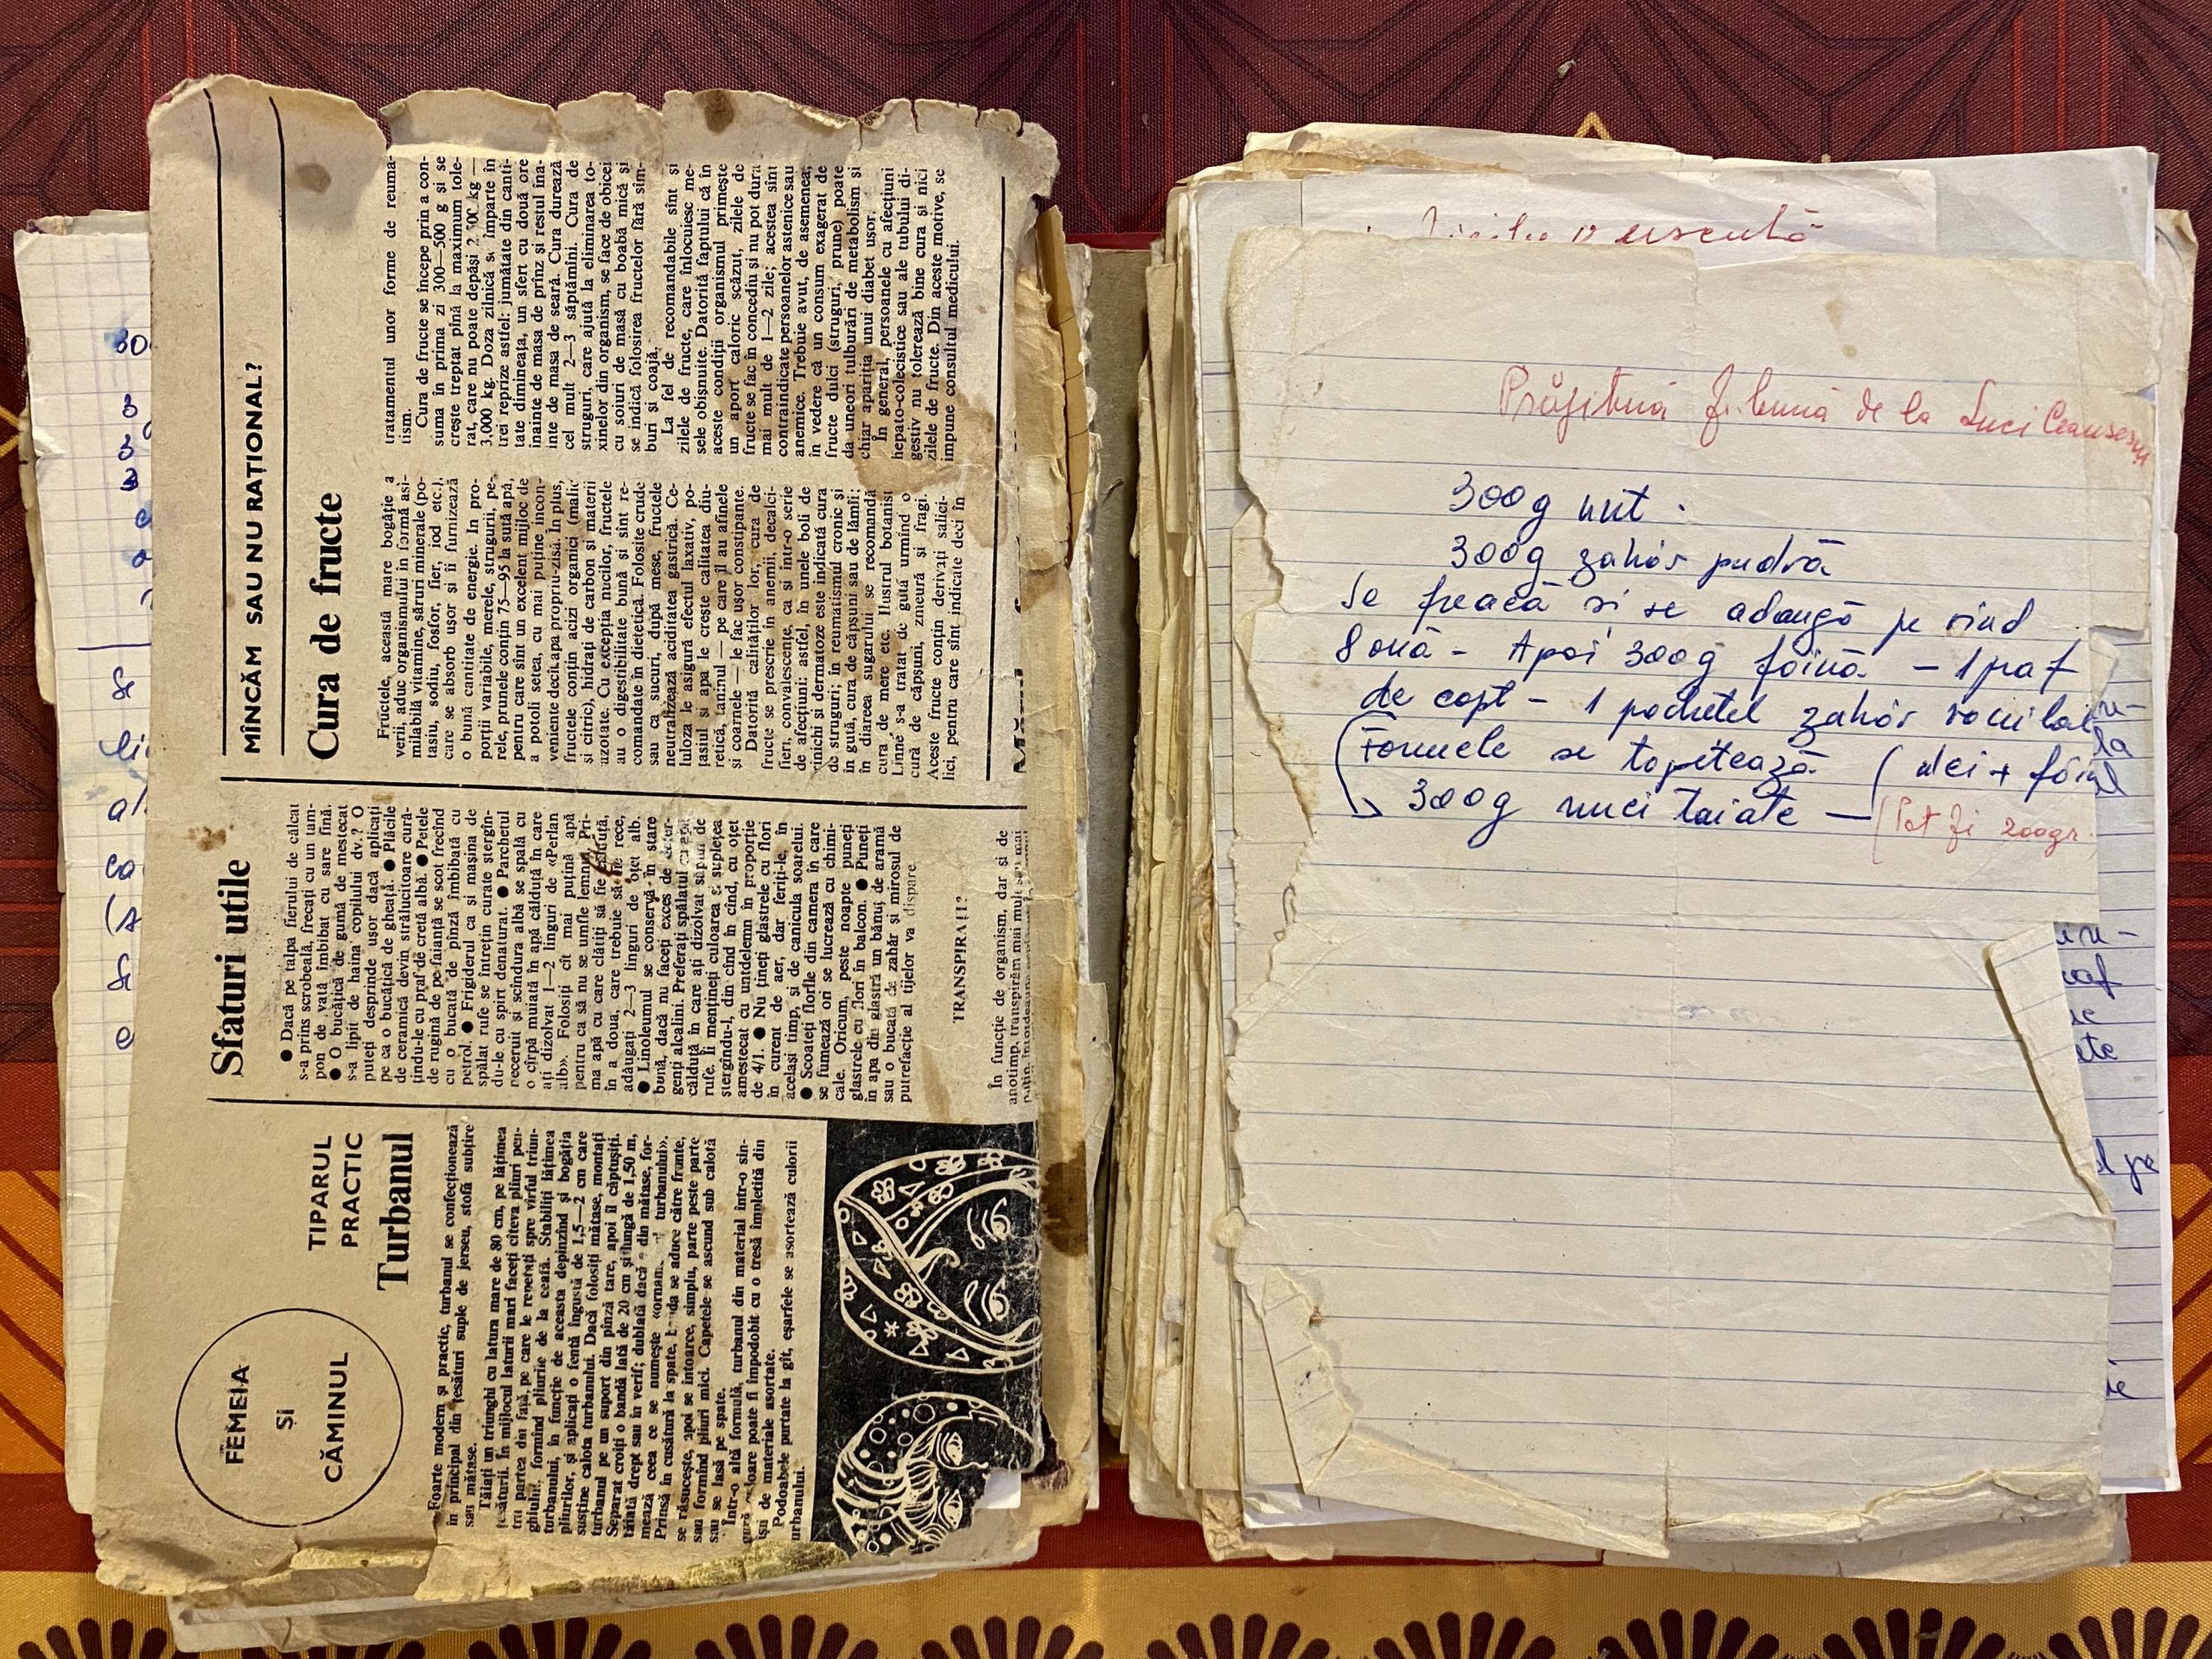 MÎNCĂM SAU NU RAȚIONAL?
Cura de fructe
Fructele, această mare bogăție a
verii, aduc organismului în formă asi-
milabilă vitamine, săruri minerale (po-
tasiu, sodiu, fosfor, fier, iod etc.),
care se absorb ușor și îi furnizează
o bună cantitate de energie. In pro-
porții variabile, merele, strugurii, pe-
rele, prunele conțin 75—95 la sută apă,
pentru care sînt un excelent mijloc de
a potoli setea, cu mai puține incon-
veniente decît apa propriu-zisă. In plus,
fructele conțin acizi organici (malic
și citric), hidrați de carbon și materii
azotate. Cu excepția nucilor, fructele
au o digestibilitate bună și sînt re-
comandate în dietetică. Folosite crude
sau ca sucuri, după mese, fructele
neutralizează aciditatea gastrică. Ce-
luloza le asigură efectul laxativ, po-
tasiul și apa le crește calitatea diu-
retică, taninul — pe care îl au afinele
și coarnele — le fac ușor constipante.
Datorită calităților lor, cura de
fructe se prescrie în anemii, decalci-
fieri, convalescențe, ca și într-o serie
de afecțiuni: astfel, în unele boli de
rinichi și dermatoze este indicată cura
de struguri; în reumatismul cronic și
în gută, cura de căpșuni sau de lămîi;
în diareea sugarului se recomandă
cura de mere etc. Ilustrul botanist
Linné s-a tratat de gută urmînd o
cură de căpșuni, zmeură și fragi.
Aceste fructe conțin derivați salici-
lici, pentru care sînt indicate deci în
tratamentul unor forme de reuma-
tism.
Cura de fructe se începe prin a con-
suma în prima zi 300—500 g și se
crește treptat pînă la maximum tole-
rat, care nu poate depăși 2,500 kg —
3,000 kg. Doza zilnică se împarte în
trei reprize astfel: jumătate din canti-
tate dimineața, un sfert cu două ore
înainte de masa de prînz și restul îna-
inte de masa de seară. Cura durează
cel mult 2—3 săptămîni. Cura de
struguri, care ajută la eliminarea to-
xinelor din organism, se face de obicei
cu soiuri de masă cu boabă mică și
se indică folosirea fructelor fără sîm-
buri și coajă.
La fel de recomandabile sînt și
zilele de fructe, care înlocuiesc me-
sele obișnuite. Datorită faptului că în
aceste condiții organismul primește
un aport caloric scăzut, zilele de
fructe se fac în concediu și nu pot dura
mai mult de 1—2 zile; acestea sînt
contraindicate persoanelor astenice sau
anemice. Trebuie avut, de asemenea,
în vedere că un consum exagerat de
fructe dulci (struguri, prune) poate
da uneori tulburări de metabolism și
chiar apariția unui diabet ușor.
În general, persoanele cu afecțiuni
hepato-colecistice sau ale tubului di-
gestiv nu tolerează bine cura și nici
zilele de fructe. Din aceste motive, se
impune consultul medicului.
Sfaturi utile
● Dacă pe talpa fierului de călcat
s-a prins scrobeală, frecați cu un tam-
pon de vată îmbibat cu sare fină.
● O bucățică de gumă de mestecat
s-a lipit de haina copilului dv.? O
puteți desprinde ușor dacă aplicați
pe ea o bucățică de gheață. ● Plăcile
de ceramică devin strălucitoare cură-
țindu-le cu praf de cretă albă. ● Petele
de rugină de pe faianță se scot frecînd
cu o bucată de pînză îmbibată cu
petrol. ● Frigiderul ca și mașina de
spălat rufe se întrețin curate ștergîn-
du-le cu spirt denaturat. ● Parchetul
neceruit și scîndura albă se spală cu
o cîrpă muiată în apă călduță în care
ați dizolvat 1—2 linguri de «Perlan
alb». Folosiți cît mai puțină apă
pentru ca să nu se umfle lemnul. Pri-
ma apă cu care clătiți să fie călduță,
în a doua, care trebuie să fie rece,
adăugați 2—3 linguri de oțet alb.
● Linoleumul se conservă în stare
bună, dacă nu faceți exces de deter-
genți alcalini. Preferați spălatul cu apă
călduță în care ați dizolvat săpun de
rufe. Îi mențineți culoarea și suplețea
ștergîndu-l, din cînd în cînd, cu oțet
amestecat cu untdelemn în proporție
de 4/1. ● Nu țineți glastrele cu flori
în curent de aer, dar feriți-le, în
același timp, și de canicula soarelui.
● Scoateți florile din camera în care
se fumează ori se lucrează cu chimi-
cale. Oricum, peste noapte puneți
glastrele cu flori în balcon. ● Puneți
în apa din glastră un bănuț de aramă
sau o bucată de zahăr și mirosul de
putrefacție al tijelor va dispare.
TRANSPIRAȚI?
În funcție de organism, dar și de
anotimp, transpirăm mai mult sau mai
FEMEIA
ȘI
CĂMINUL
TIPARUL
PRACTIC
Turbanul
Foarte modern și practic, turbanul se confecționează
în principal din țesături suple de jerseu, stofă subțire
sau mătase.
Tăiați un triunghi cu latura mare de 80 cm, pe lățimea
țesăturii. În mijlocul laturii mari faceți cîteva pliuri pen-
tru partea din față, pe care le repetați spre vîrful triun-
ghiului, formînd pliurile de la ceafă. Stabiliți lățimea
turbanului, în funcție de aceasta depinzînd și bogăția
pliurilor, și aplicați o fentă îngustă de 1,5—2 cm care
susține calota turbanului. Dacă folosiți mătase, montați
turbanul pe un suport din pînză tare, apoi îl căptușiți.
Separat croiți o bandă lată de 20 cm și lungă de 1,50 m,
tăiată drept sau în verif; dublată dacă e din mătase, for-
mează ceea ce se numește «ornamentul turbanului».
Prinsă în cusătură la spate, banda se aduce către frunte,
se răsucește, apoi se întoarce, simplu, parte peste parte
sau formînd pliuri mici. Capetele se ascund sub calotă
sau se lasă pe spate.
Într-o altă formulă, turbanul din material într-o sin-
gură culoare poate fi împodobit cu o tresă împletită din
fîșii de materiale asortate.
Podoabele purtate la gît, eșarfele se asortează culorii
turbanului.
Prăjitură f. bună de la Luci Ceaușescu
300g unt.
300g zahăr pudră
Se freacă și se adaugă pe rînd
8 ouă - Apoi 300g făină - 1 praf
de copt - 1 pachetel zahăr vanilat
Formele se tapetează (ulei + făină
300g nuci taiate - (Pot fi 200gr.